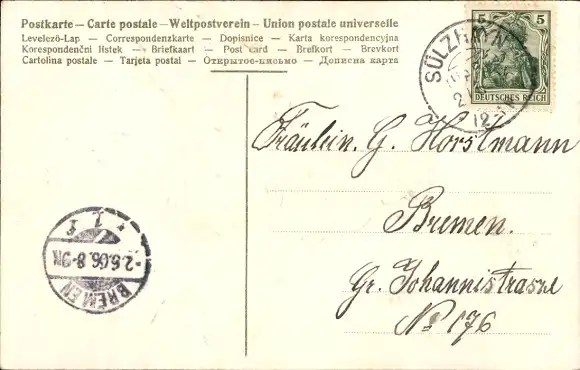 Postkarte – Carte postale – Weltpostverein – Union postale universelle
Levelező-Lap – Correspondenzkarte – Dopisnice – Karta korespondencyjna
Korespondenční lístek – Briefkaart – Post card – Brefkort – Brevkort
Cartolina postale – Tarjeta postal – Открытое письмо – Дописна карта
5 5
DEUTSCHES REICH
SÜLZHAYN
12
Fräulein. G. Horstmann
Bremen.
Gr. Johannistrasse
No 176
BREMEN
2.6.06. 8-9N
* 1 f